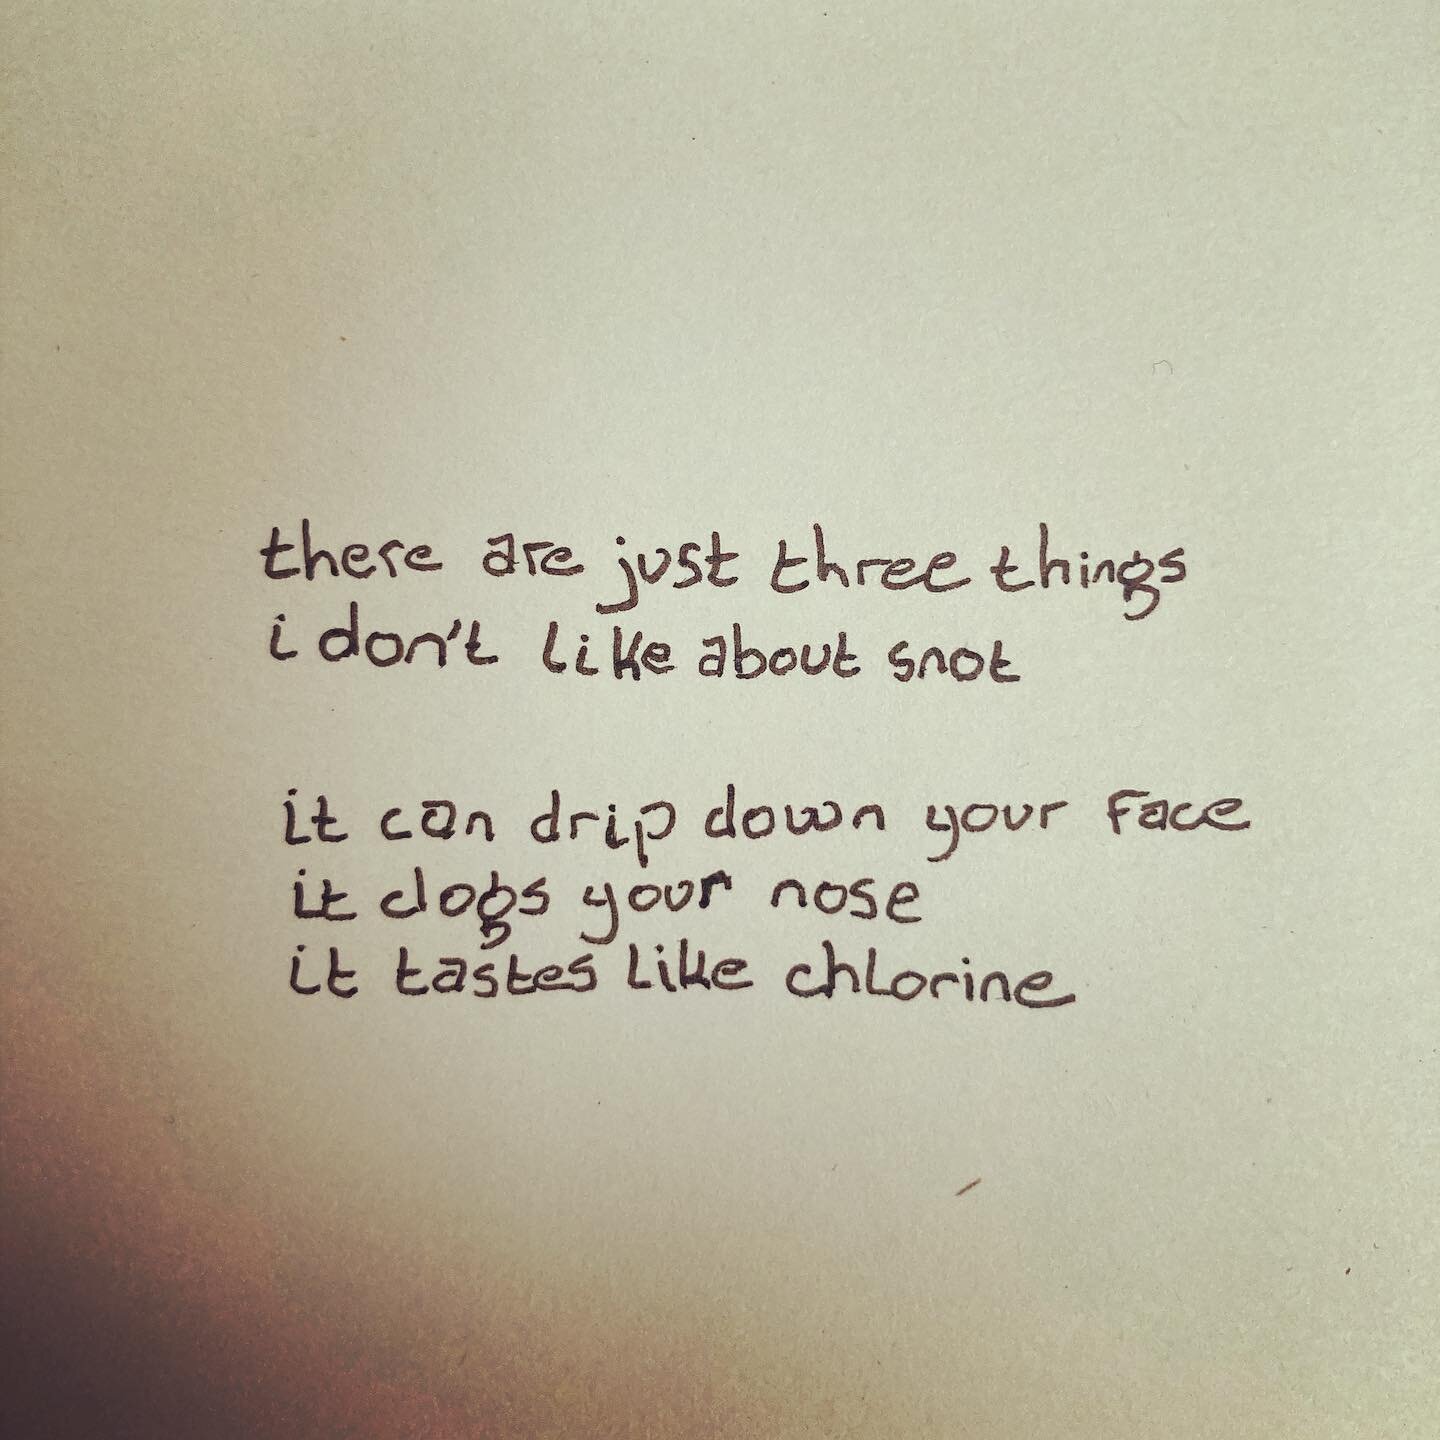 there are just three things
i don't like about snot
it can drip down your face
it clogs your nose
it tastes like chlorine